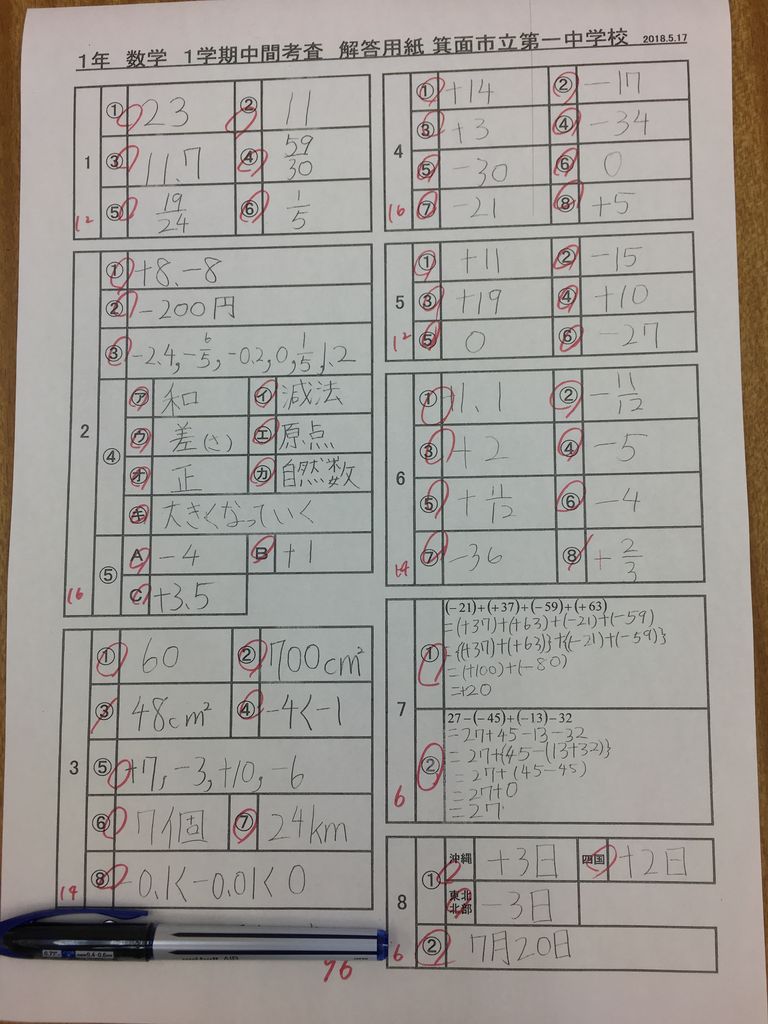 1年 数学 1学期中間考査 解答用紙 箕面市立第一中学校 2018.5.17
1
① 23 ② 11
③ 11.7 ④ 59/30
⑤ 19/24 ⑥ 1/5
12
2
① +8、-8
② -200円
③ -2.4, -6/5, -0.2, 0, 1/5, 1.2
④
ア 和 イ 減法
ウ 差(さ) エ 原点
オ 正 カ 自然数
キ 大きくなっていく
⑤
A -4 B +1
C +3.5
16
3
① 60 ② 700cm²
③ 48cm² ④ -4<-1
⑤ +7, -3, +10, -6
⑥ 7個 ⑦ 24km
⑧ -0.1<-0.01<0
14
4
① +14 ② -17
③ +3 ④ -34
⑤ -30 ⑥ 0
⑦ -21 ⑧ +5
16
5
① +11 ② -15
③ +19 ④ +10
⑤ 0 ⑥ -27
12
6
① -1.1 ② -11/12
③ +2 ④ -5
⑤ +11/12 ⑥ -4
⑦ -36 ⑧ +2/3
14
7
①
(-21)+(+37)+(-59)+(+63)
=(+37)+(+63)+(-21)+(-59)
={(+37)+(+63)}+{(-21)+(-59)}
=(+100)+(-80)
=+20
②
27-(-45)+(-13)-32
=27+45-13-32
=27+{45-(13+32)}
=27+(45-45)
=27+0
=27
6
8
① 沖縄 +3日 四国 +2日
東北北部 -3日
② 7月20日
6
96